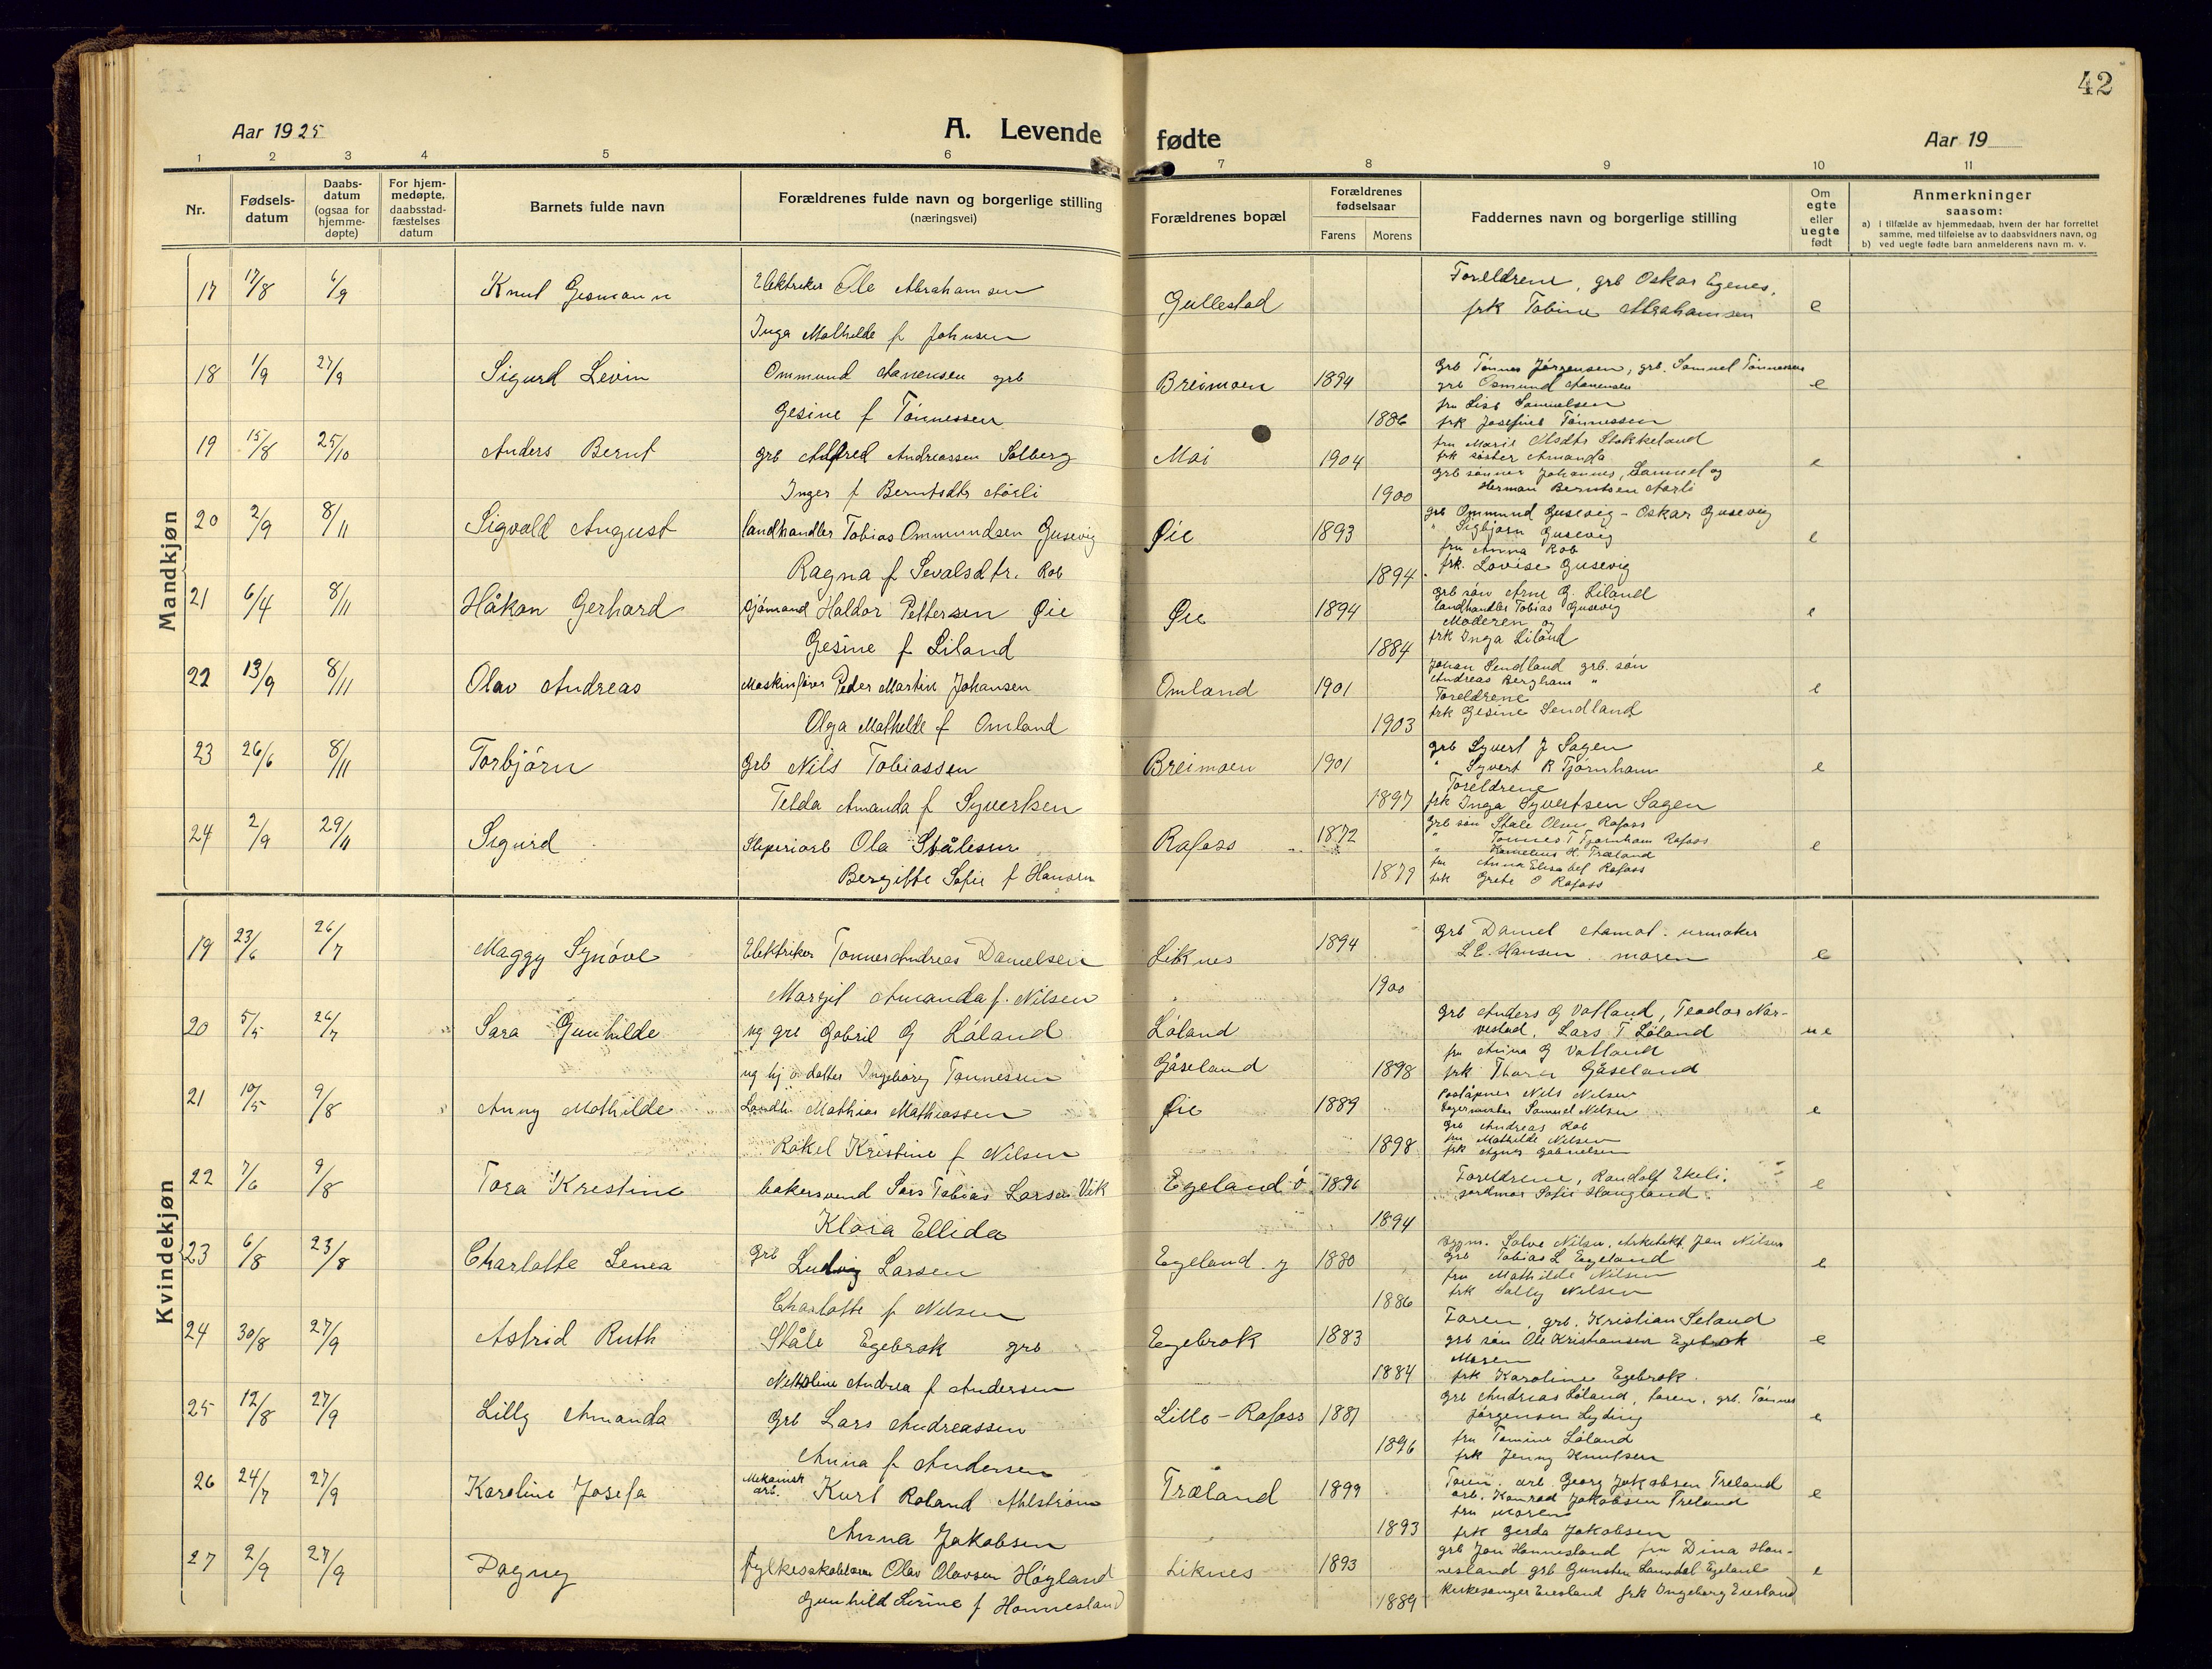 42
Aar 1925
A. Levende fødte
Aar 19
1 2 3 4 5 6 7 8 9 10 11
Nr.
Fødsels-datum
Daabs-datum (ogsaa for hjemme-døpte)
For hjem-medøpte, daabsstad-fæstelses datum
Barnets fulde navn
Forældrenes fulde navn og borgerlige stilling (næringsvei)
Forældrenes bopæl
Forældrenes fødselsaar
Farens Morens
Faddernes navn og borgerlige stilling
Om egte eller uegte født
Anmerkninger saasom:
a) i tilfælde av hjemmedaab, hvem der har forrettet samme, med tilføielse av to daabsvidners navn, og
b) ved uegte fødte barn anmelderens navn m. v.
Mandkjøn
17 17/8 6/9 Knut Gesmann Elektriker Ole Abrahamsen Gullestad Foreldrene, grb Oskar Egenes, e
Inga Mathilde f Johnsen frk Tobine Abrahamsen
18 1/9 27/9 Sigurd Levin Ommund Aanensen grb Breimoen 1894 grb Tønnes Jørgensen, grb. Samuel Tønnessen e
grb Osmund Aanensen
Gesine f Tønnessen 1886 fru Lise Samuelsen
frk Josefine Tønnessen
19 15/8 25/10 Anders Bernt grb Alfred Andreassen Solberg Moi 1904 fru Marie Olsdtr Stakkeland e
frk søster Amanda
Inger f Berntsdtr Aarli 1900 grb sønner Johannes, Samuel og
Herman Berntsen Aarli
20 2/9 8/11 Sigvald August landhandler Tobias Ommundsen Gusevig Øie 1893 grb Ommund Gusevig - Oskar Gusevig e
" Sigbjørn Gusevig
fru Anna Rob
Ragna f Sevalsdtr. Rob 1894 frk. Lovise Gusevig
21 6/4 8/11 Håkon Gerhard sjømand Haldor Pettersen Øie Øie 1894 grb søn Arne G. Liland e
landhandler Tobias Gusevig
Moderen og
Gesine f Liland 1884 frk Inga Liland
22 13/9 8/11 Olav Andreas Maskinfører Peder Martin Johansen Omland 1901 Johan Sendland grb. søn e
Andreas Berghom "
Foreldrene
Olga Mathilde f Omland 1903 frk Gesine Sendland
23 26/6 8/11 Torbjørn grb Nils Tobiassen Breimoen 1901 grb Syvert J Sagen e
" Syvert R Tjørnhom
Foreldrene
Telda Amanda f Syvertsen 1897 frk Inga Syvertsen Sagen
24 2/9 29/11 Sigurd Sliperiarb Ola Stålesen Rafoss 1872 grb søn Ståle Olsen Rafoss e
" Tønnes T Tjørnhom Rafoss
" Kornelius H. Træland
Bergitte Sofie f Hansen 1879 fru Anna Elisabet Rafoss
frk Grete O Rafoss
Kvindekjøn
19 23/6 26/7 Maggy Synøve Elektriker Tønnes Andreas Danielsen Liknes 1894 grb Daniel Aamot. urmaker e
L C. Hansen. moren
Margit Amanda f. Nilsen " 1900
20 5/5 26/7 Sara Gunhilde ug grb Gabriel G Løland Løland grb Anders G Vatland, Teodor Nar- ue
vestad, Lars T. Løland
ug hj.v. datter Ingeborg Tønnessen Gåseland 1898 fru Anna G Vatland
frk Thora Gåseland
21 10/5 9/8 Anny Mathilde Landh. Mathias Mathiassen Øie 1889 Poståpner Nils Nilsen e
Samuel Nilsen
grb Andreas Rob
Rakel Kristine f Nilsen 1898 fru Mathilde Nilsen
frk Agnes Gabrielsen
22 7/6 9/8 Tora Kristine bakersvend Lars Tobias Larsen Vik Egeland ø. 1896 Foreldrene, Randolf Ekeli. e
jordmor Sofie Haugland
Klara Ellida 1894
23 6/8 23/8 Charlotte Lenea grb Ludvig Larsen Egeland. y 1880 Solve Nilsen, Arkitekt Jan Nilsen e
grb Tobias L Egeland
fru Mathilde Nilsen
Charlotte f Nilsen 1886 frk Sally Nilsen
24 30/8 27/9 Astrid Ruth Ståle Egebrok grb Egebrok 1883 Faren, grb. Kristian Seland e
grb søn Ole Kristiansen Egebrok
Moren
Nettoline Andrea f Andersen 1884 frk Karoline Egebrok
25 12/8 27/9 Lilly Amanda grb Lars Andreassen Lille-Rafoss 1881 grb Andreas Løland, faren, grb. Tønnes e
Jørgensen Lyding
Anna f Andersen 1896 fru Tomine Løland
frk Jenny Knutsen
26 24/7 27/9 Karoline Josefa Mekanisk arb. Kurt Roland Ahlstrøm Træland 1899 Faren, arb. Georg Jakobsen Treland e
arb. Konrad Jakobsen Treland
fru Moren
Anna Jakobsen 1893 frk Gerda Jakobsen
27 2/9 27/9 Dagny fylkesskolelærer Olav Olavsen Høyland Liknes 1893 grb Jon Honnesland fru Dina Hon- e
nesland grb Gunsten Lausdal Egeland
Gunhild Serine f Honnesland 1889 Kirkesanger Eiesland frk Ingeborg Eiesland